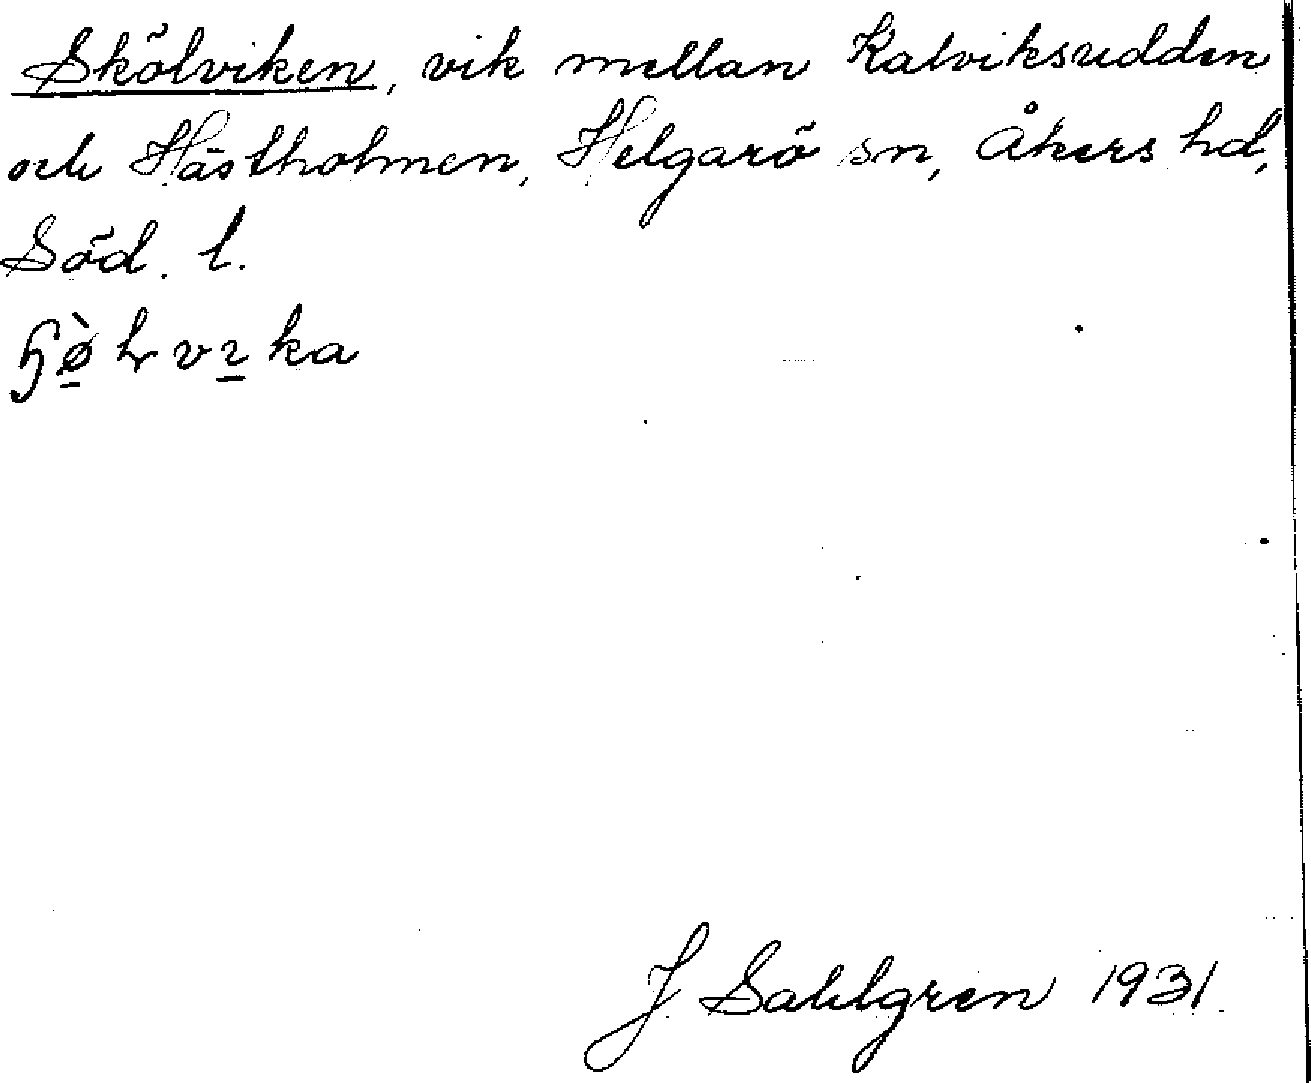 Skölviken, vik mellan Kalviksudden
och Hästholmen, Helgarö sn, Åkers hd,
Söd. l.
J Sahlgren 1931